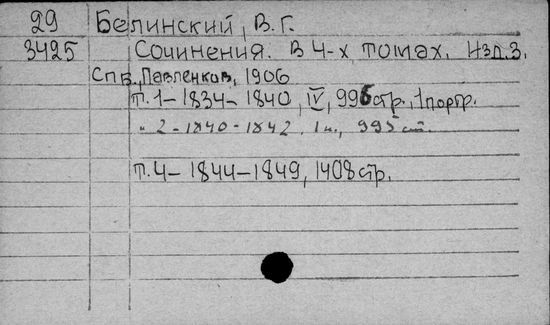 29 Белинский, В.Г.
3425 Сочинения. В 4-х томах. Изд.3.
Спб., Павленков, 1906
Т.1 – 1834 – 1840, IV, 996 стр., 1 портр.
" 2 – 1840 – 1842. 1 л., 995 ст.
Т.4 – 1844 – 1849, 1408 стр.